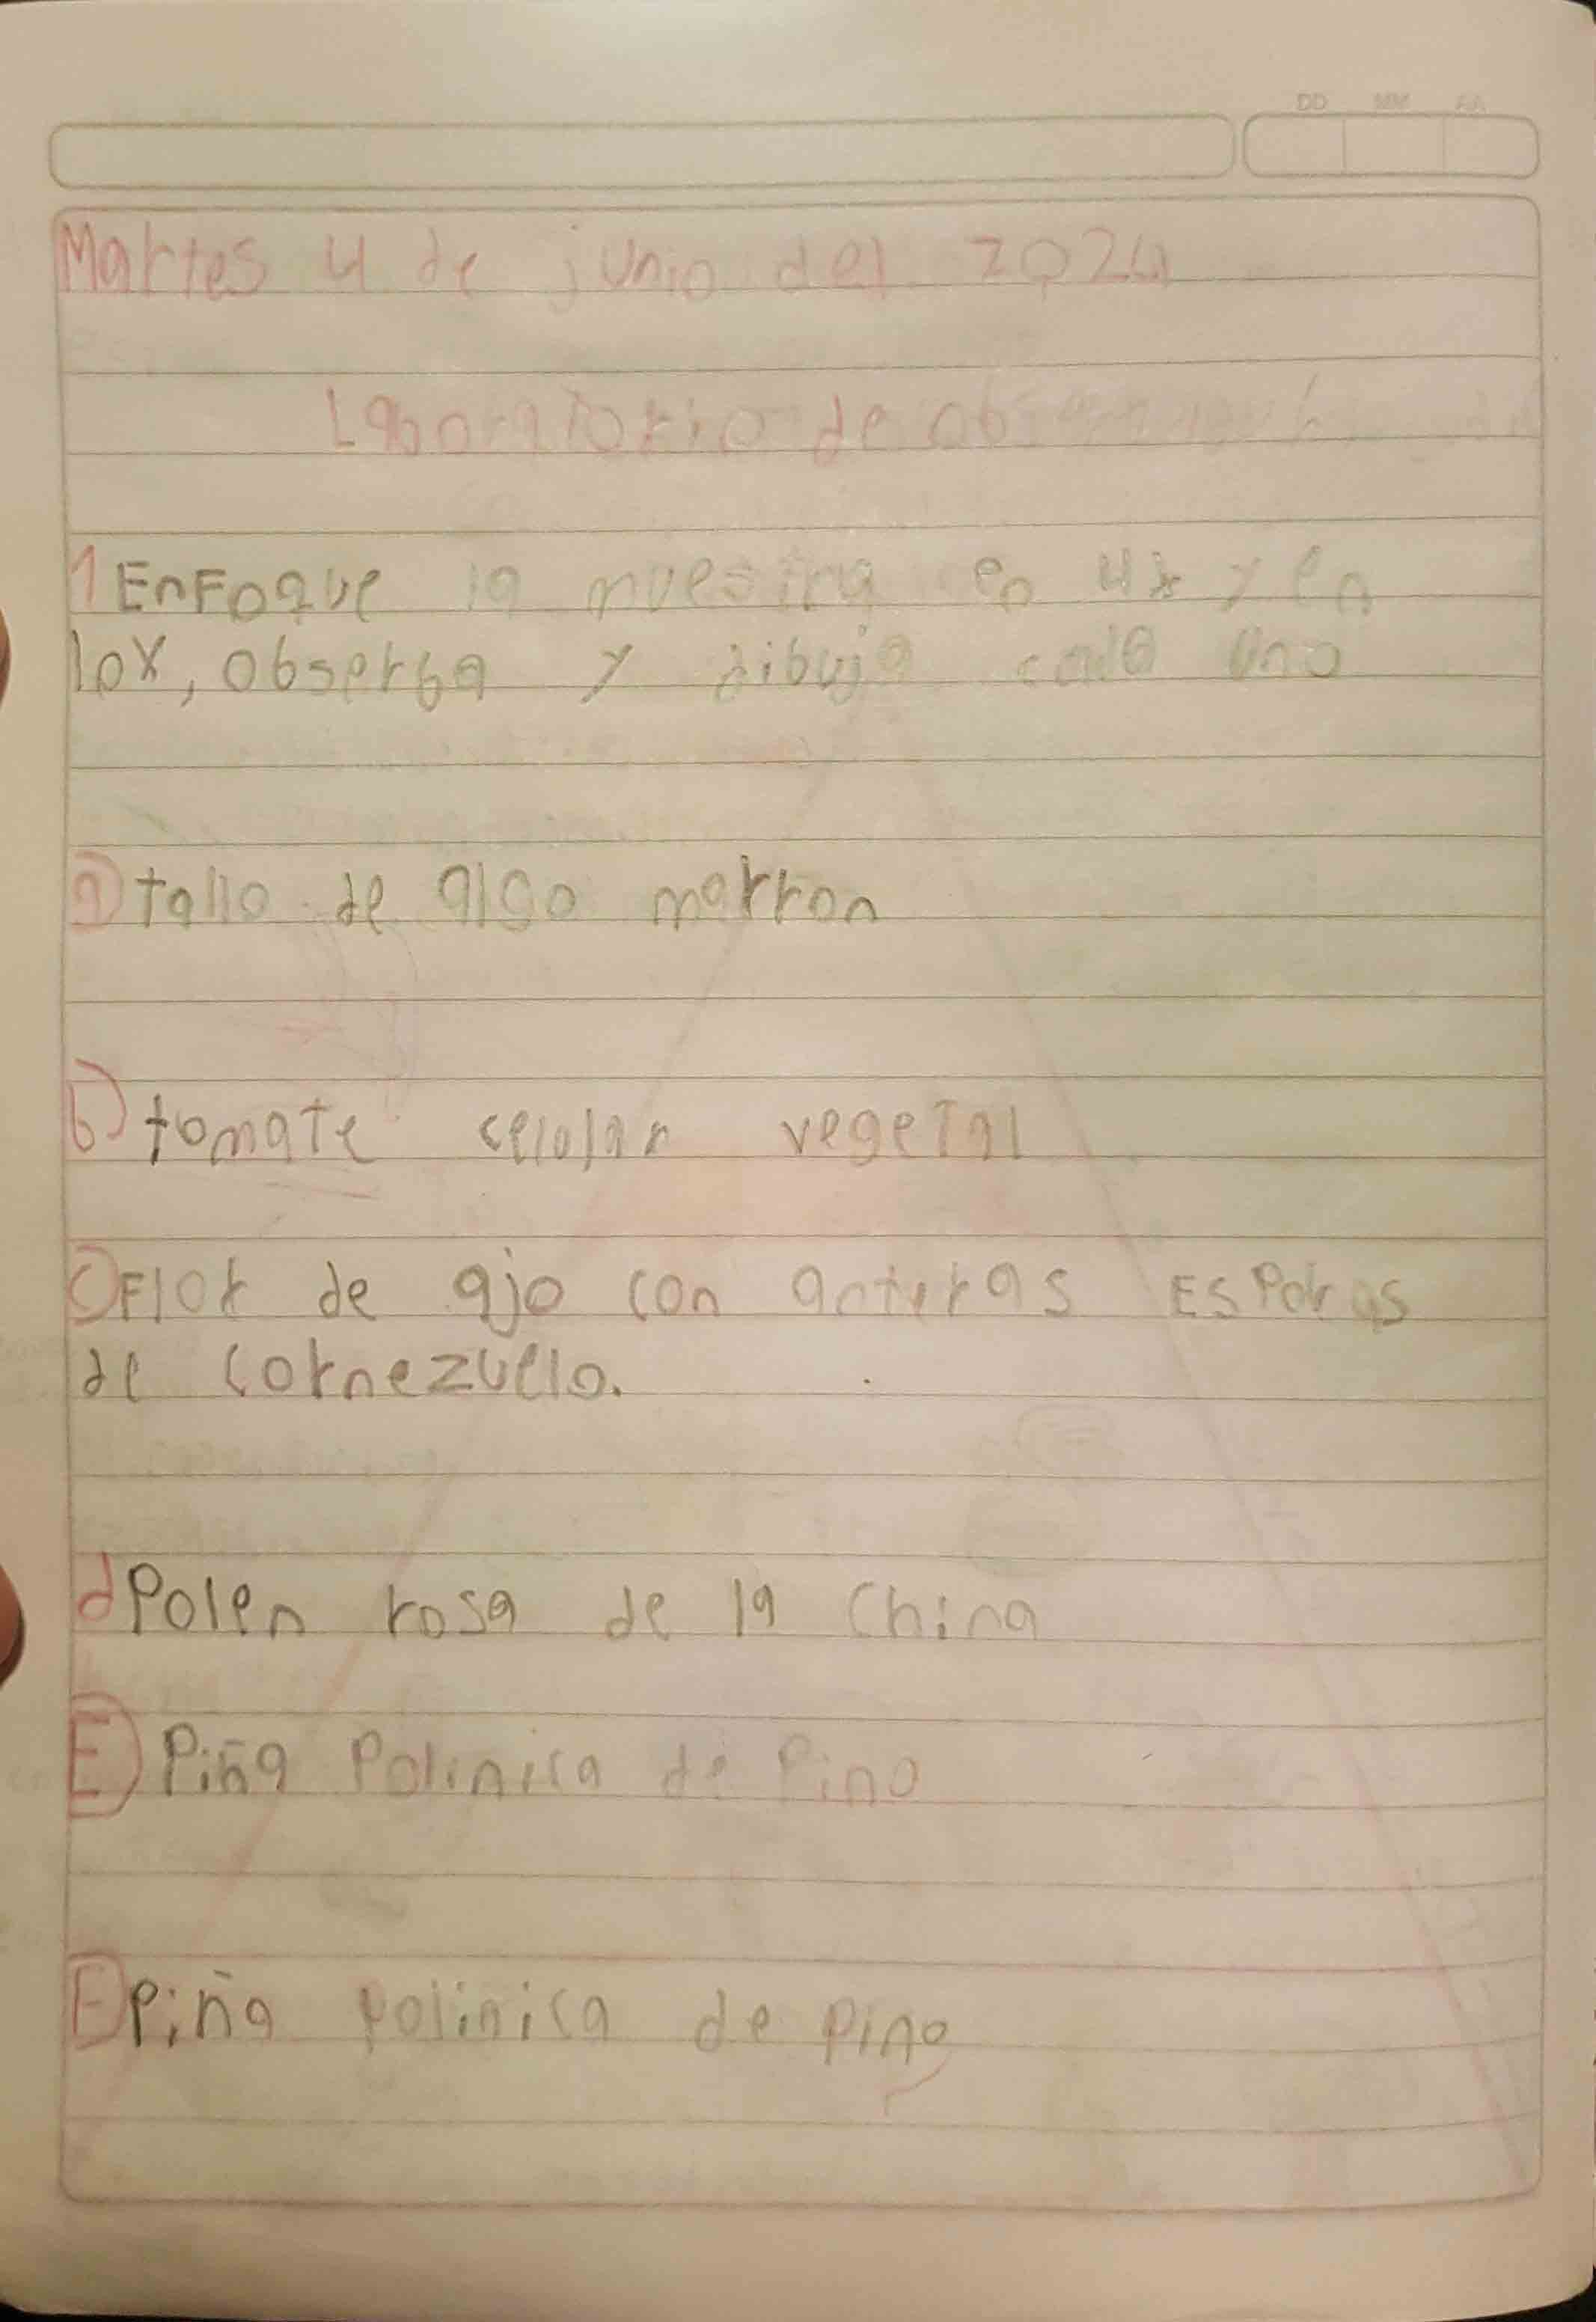 DD MM AA
Martes 4 de junio del 2024
Laboratorio de
1 EnFoque la muestra en 4x y en
10x, obserba y dibuja cada uno
a) tallo de algo marron
b) tomate celolar vegetal
c) Flor de ajo con anteras Esporas
de cornezuelo.
d Polen rosa de la China
E) Piña Polinica de Pino
E) Piña polinica de pino